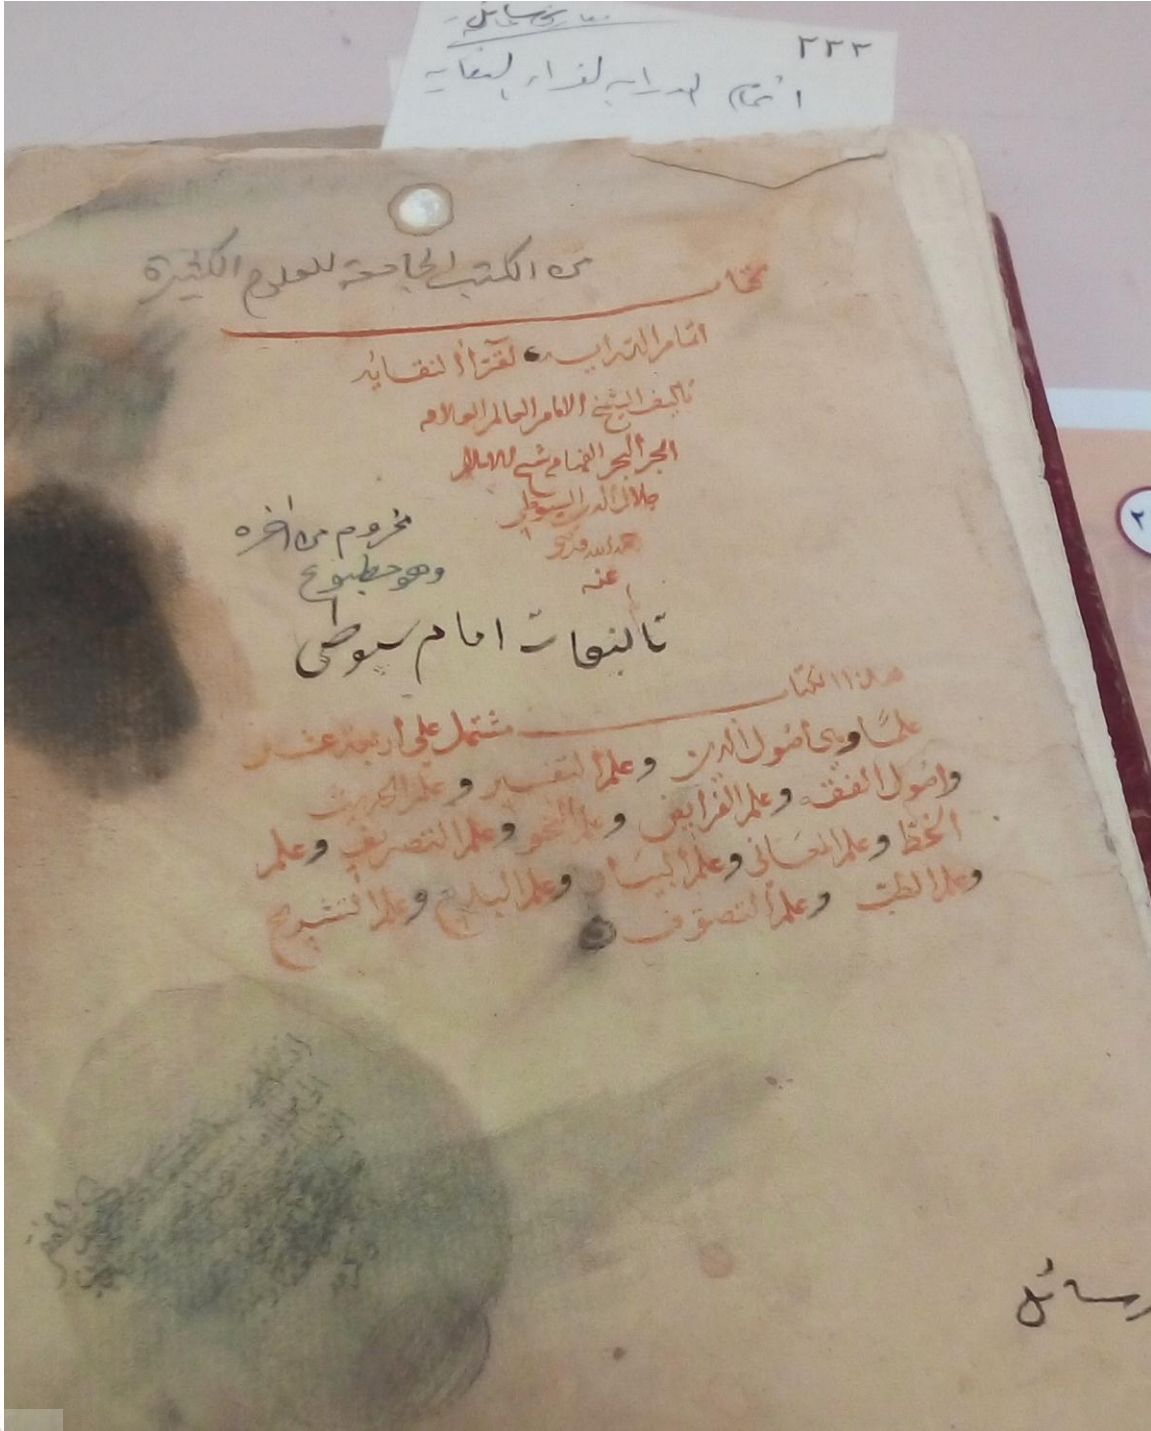 رسائل
٢٢٢
اتمام الدرايه لقراء النقايه
من الكتب الجامعة للعلوم الكثيرة
كتاب
اتمام الدرايه لقرّاء النقايه
تاليف الشيخ الامام العالم العلامه
الحبر البحر الفهامه شيخ الاسلام
جلال الدين السيوطي
رحمه الله ورضي
عنه
مخروم من اخره
وهو مطبوع
تاليفات امام سيوطى
هذا الكتاب مشتمل على أربعة عشر
علمًا وهي أصول الدين وعلم التفسير وعلم الحديث
واصول الفقه وعلم الفرايض وعلم النحو وعلم التصريف وعلم
الخط وعلم المعَاني وعلم البيَان وعلم البديع وعلم التشريح
وعلم الطب وعلم التصوّف
رسائل
٢